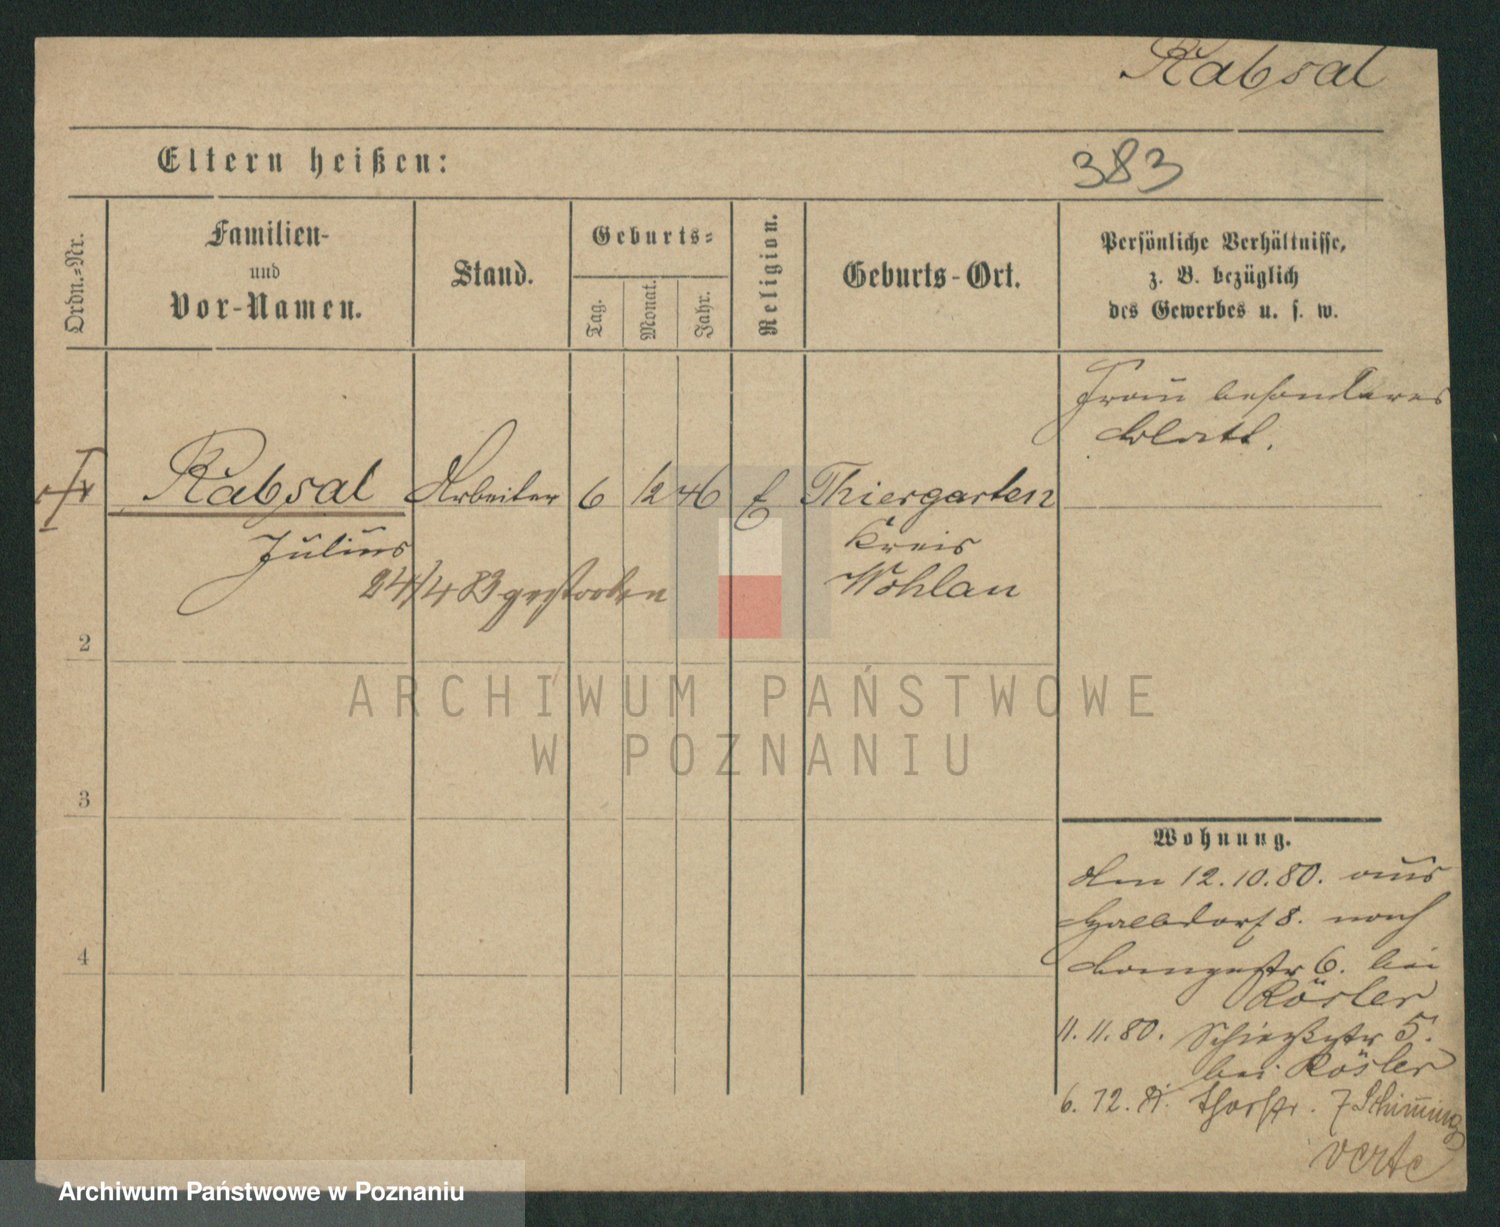 Rabsal
Eltern heißen:
383
Ordn.-Nr.
Familien-
und
Vor-Namen.
Stand.
Geburts-
Tag.
Monat.
Jahr.
Religion.
Geburts-Ort.
Persönliche Verhältnisse,
z. B. bezüglich
des Gewerbes u. s. w.
Frau besonderes
Blatt.
Rabsal Arbeiter 6 12 46 E Thiergarten
Julius Kreis
24/4 83 gestorben Wohlau
2
3
4
ARCHIWUM PAŃSTWOWE
W POZNANIU
Wohnung.
den 12.10.80. aus
Halbdorf 8. nach
Langestr 6. bei
Rösler
11.11.80. Schießstr 5.
bei Rösler
6. 12. Thorstr. 7
verte
Archiwum Państwowe w Poznaniu